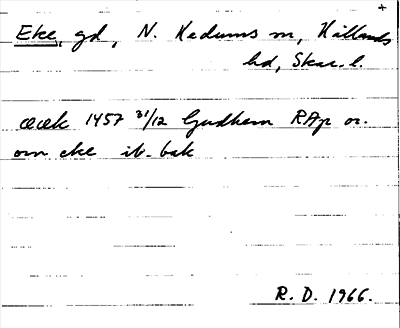 +
Eke, gd, N. Kedums sn, Kållands
hd, Skar. l.
æcæk 1457 31/12 Gudhem RAp or.
om eke ib. bak
R. D. 1966.